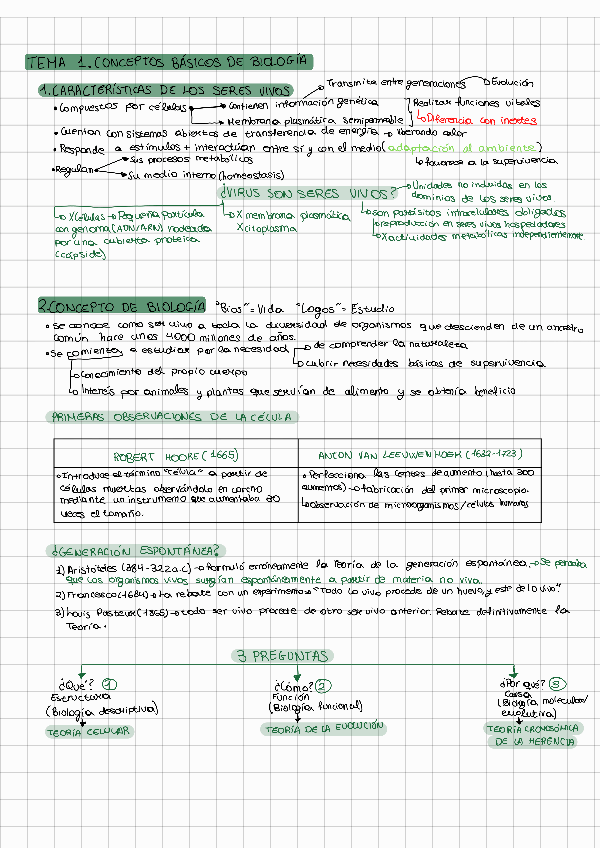 TEMA 1. CONCEPTOS BÁSICOS DE BIOLOGÍA
1. CARACTERÍSTICAS DE LOS SERES VIVOS
Transmite entre generaciones → Evolución
• Compuestos por células → Contienen información genética
→ Membrana plasmática semipermeable
Realizar funciones vitales
↳ Diferencia con inertes
• Cuentan con sistemas abiertos de transferencia de energía → liberando calor
• Responde a estímulos + interactúan entre sí y con el medio (adaptación al ambiente)
↳ favorece a la supervivencia
• Regulan → Sus procesos metabólicos
→ Su medio interno (homeostasis)
¿VIRUS SON SERES VIVOS?
→ Unidades no incluidas en los
dominios de los seres vivos
↳ X Células → Pequeña partícula
con genoma (ADN/ARN) rodeada
por una cubierta proteica
(cápside)
↳ X membrana plasmática
X citoplasma
↳ son parásitos intracelulares obligados
↳ reproducción en seres vivos hospedadores
↳ X actividades metabólicas independientemente
2. CONCEPTO DE BIOLOGÍA "Bios" = Vida "Logos" = Estudio
• Se conoce como ser vivo a toda la diversidad de organismos que descienden de un ancestro
común hace unos 4000 millones de años.
• Se comienza a estudiar por la necesidad → de comprender la naturaleza
↳ cubrir necesidades básicas de supervivencia
↳ Conocimiento del propio cuerpo
↳ Interés por animales y plantas que servían de alimento y se obtenía beneficio
PRIMERAS OBSERVACIONES DE LA CÉLULA
ROBERT HOORE (1665)
• Introduce el término "célula" a partir de
células muertas observándolo en corcho
mediante un instrumento que aumentaba 30
veces el tamaño.
ANTON VAN LEEUWENHOEK (1632-1723)
• Perfecciona las lentes de aumento (hasta 300
aumentos) → fabricación del primer microscopio.
↳ observación de microorganismos/células humanas
¿GENERACIÓN ESPONTÁNEA?
1) Aristóteles (384-322 a.C) → Formuló erróneamente la Teoría de la generación espontánea → Se pensaba
que los organismos vivos surgían espontáneamente a partir de materia no viva.
2) Francesco (1684) → La rebate con un experimento → "Todo lo vivo procede de un huevo, y este de lo vivo".
3) Louis Pasteur (1865) → todo ser vivo procede de otro ser vivo anterior. Rebate definitivamente la
Teoría.
3 PREGUNTAS
¿Qué? 1
Estructura
(Biología descriptiva)
TEORÍA CELULAR
¿Cómo? 2
Función
(Biología funcional)
TEORÍA DE LA EVOLUCIÓN
¿Por qué? 3
Causa
(Biología molecular/
evolutiva)
TEORÍA CROMOSÓMICA
DE LA HERENCIA